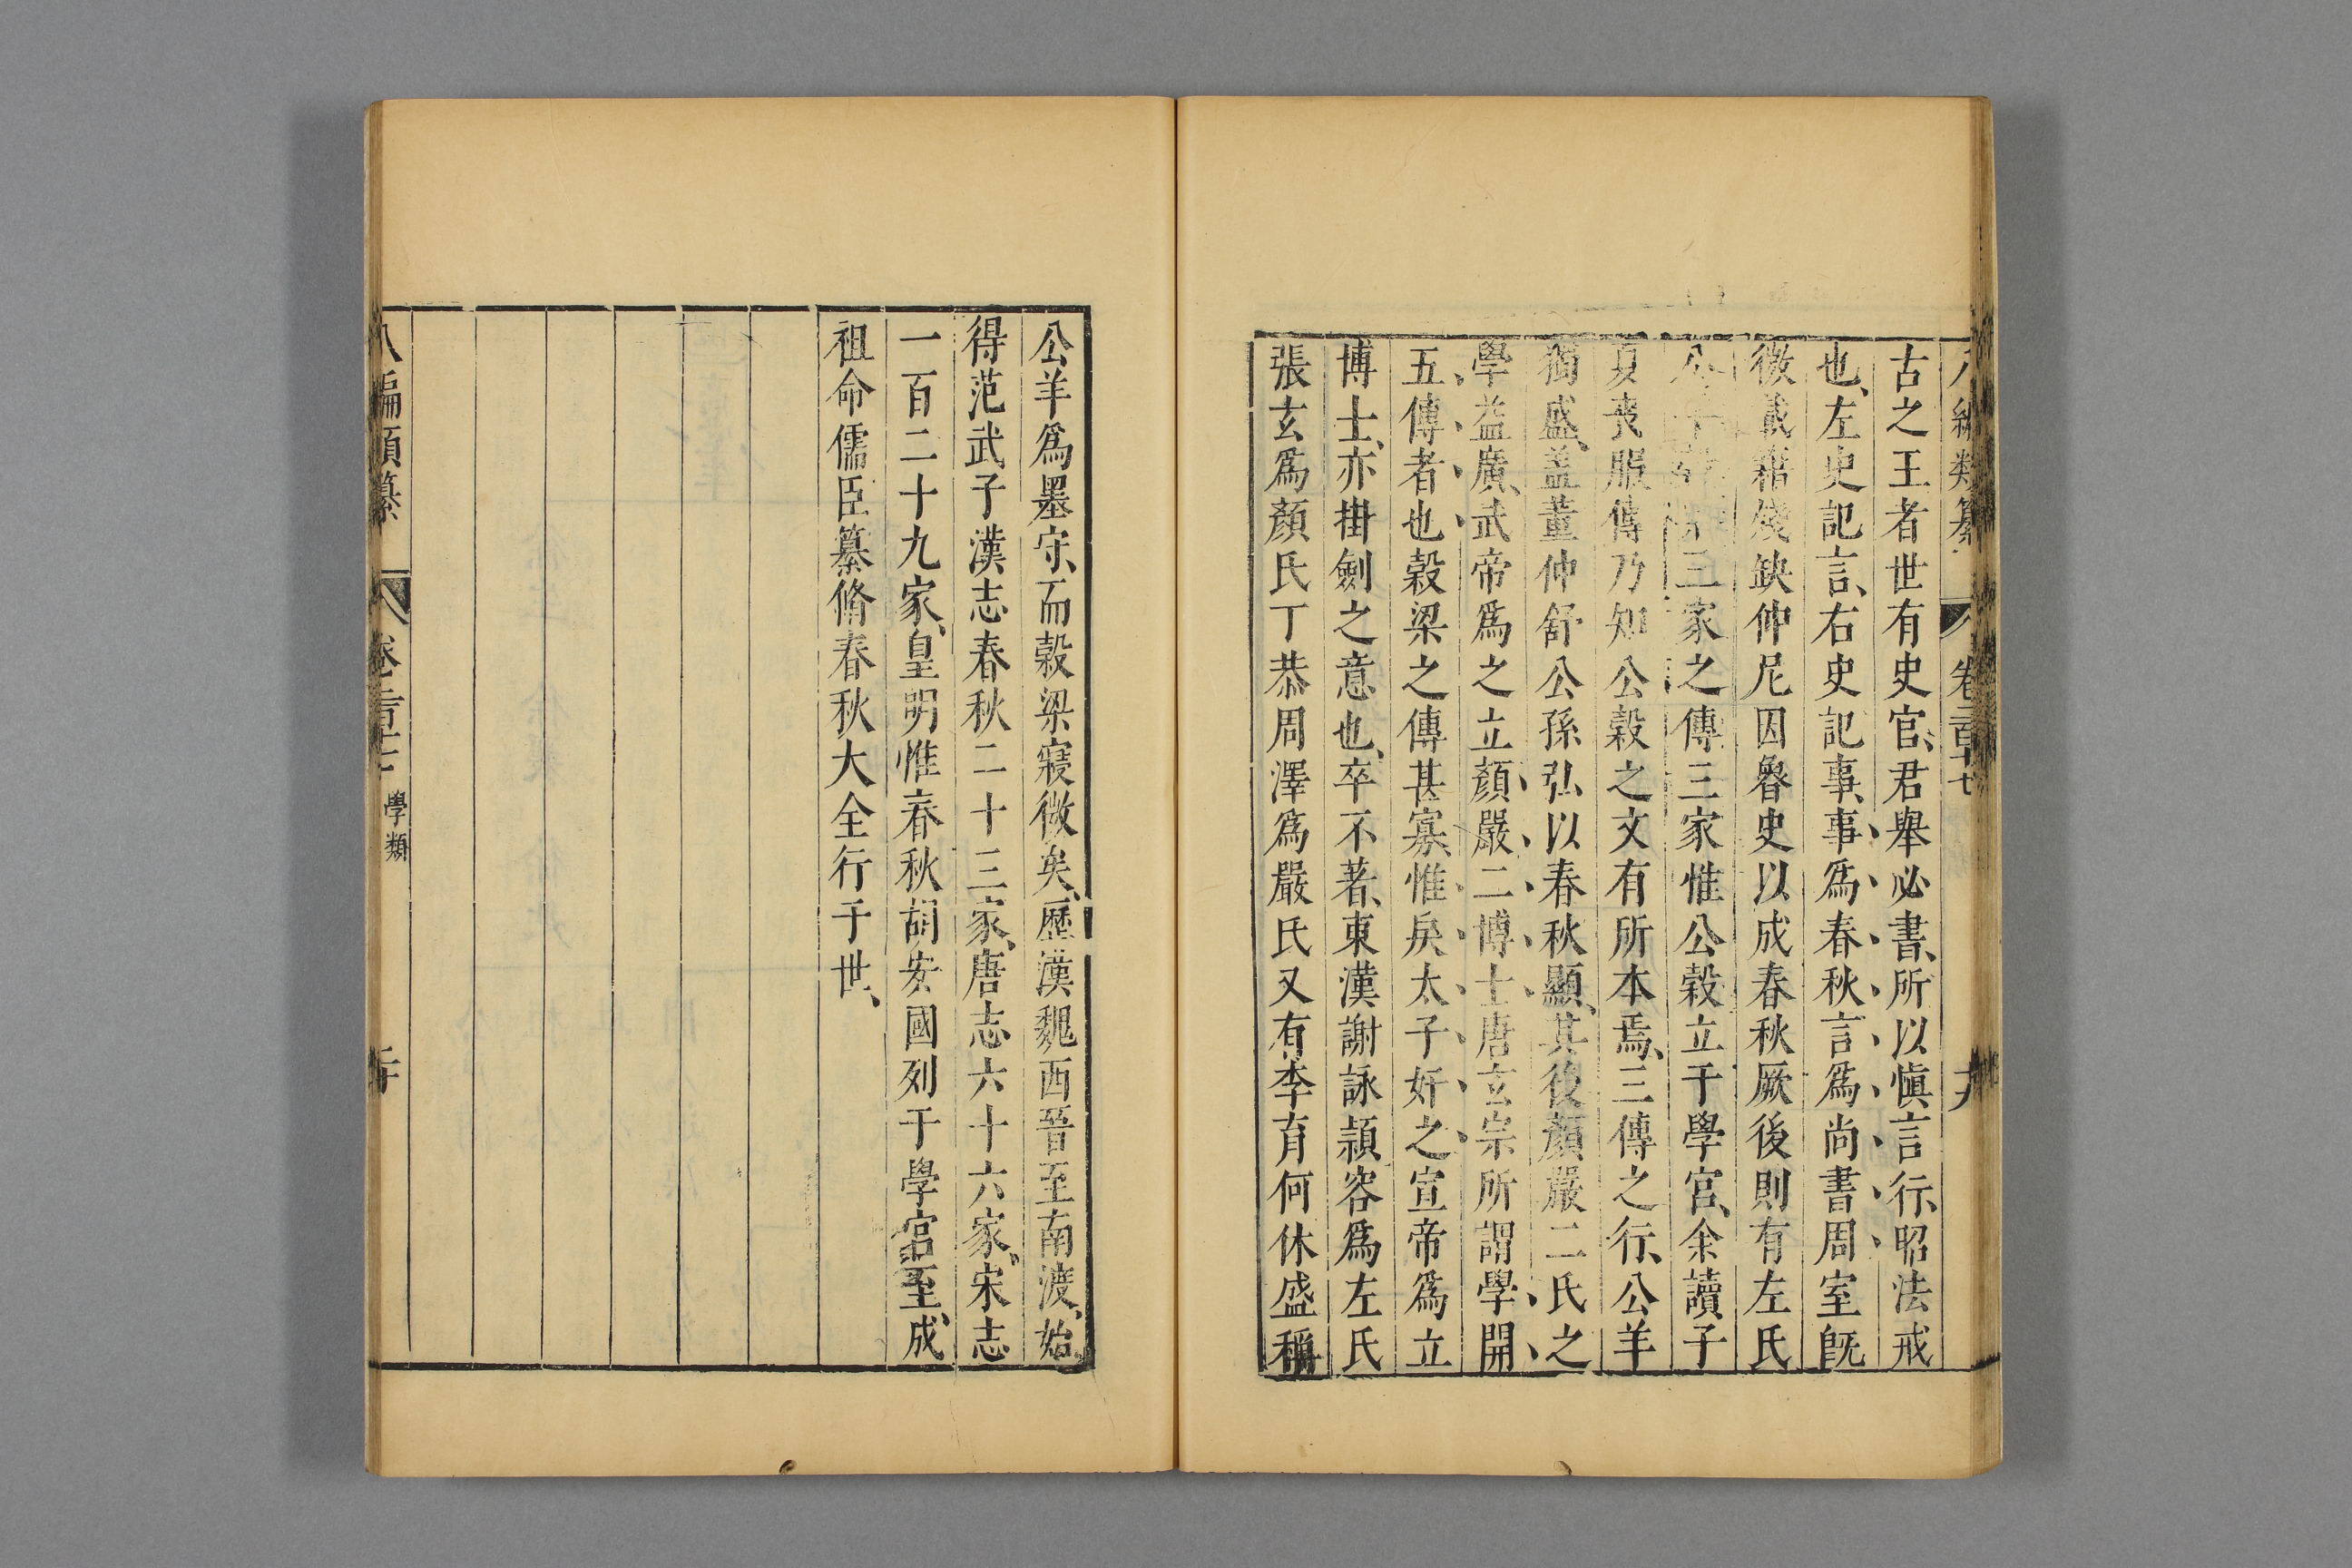 編類纂 卷二百十七 十九
古之王者世有史官、君舉必書、所以慎言行、昭法戒
也、左史記言、右史記事、事爲春秋、言爲尚書周室旣
微載籍殘缺仲尼因魯史以成春秋厥後則有左氏
三家之傳三家惟公穀立于學宮、余讀子
夏喪服傳乃知公穀之文有所本焉、三傳之行、公羊
獨盛、蓋董仲舒公孫弘以春秋顯、其後顏嚴二氏之
學益廣、武帝爲之立顏嚴二博士唐玄宗所謂學開
五傳者也穀梁之傳甚寡惟戾太子好之宣帝爲立
博士、亦掛劍之意也、卒不著、東漢謝詠頴容爲左氏
張玄爲顏氏丁恭周澤爲嚴氏又有李育何休盛稱
公羊爲墨守、而穀梁寖微矣、歷漢魏西晉至南渡、始
得范武子漢志春秋二十三家、唐志六十六家、宋志
一百二十九家、皇明惟春秋胡安國列于學宮至、成
祖命儒臣纂脩春秋大全行于世、
八編類纂 卷二百十七 學類 二十